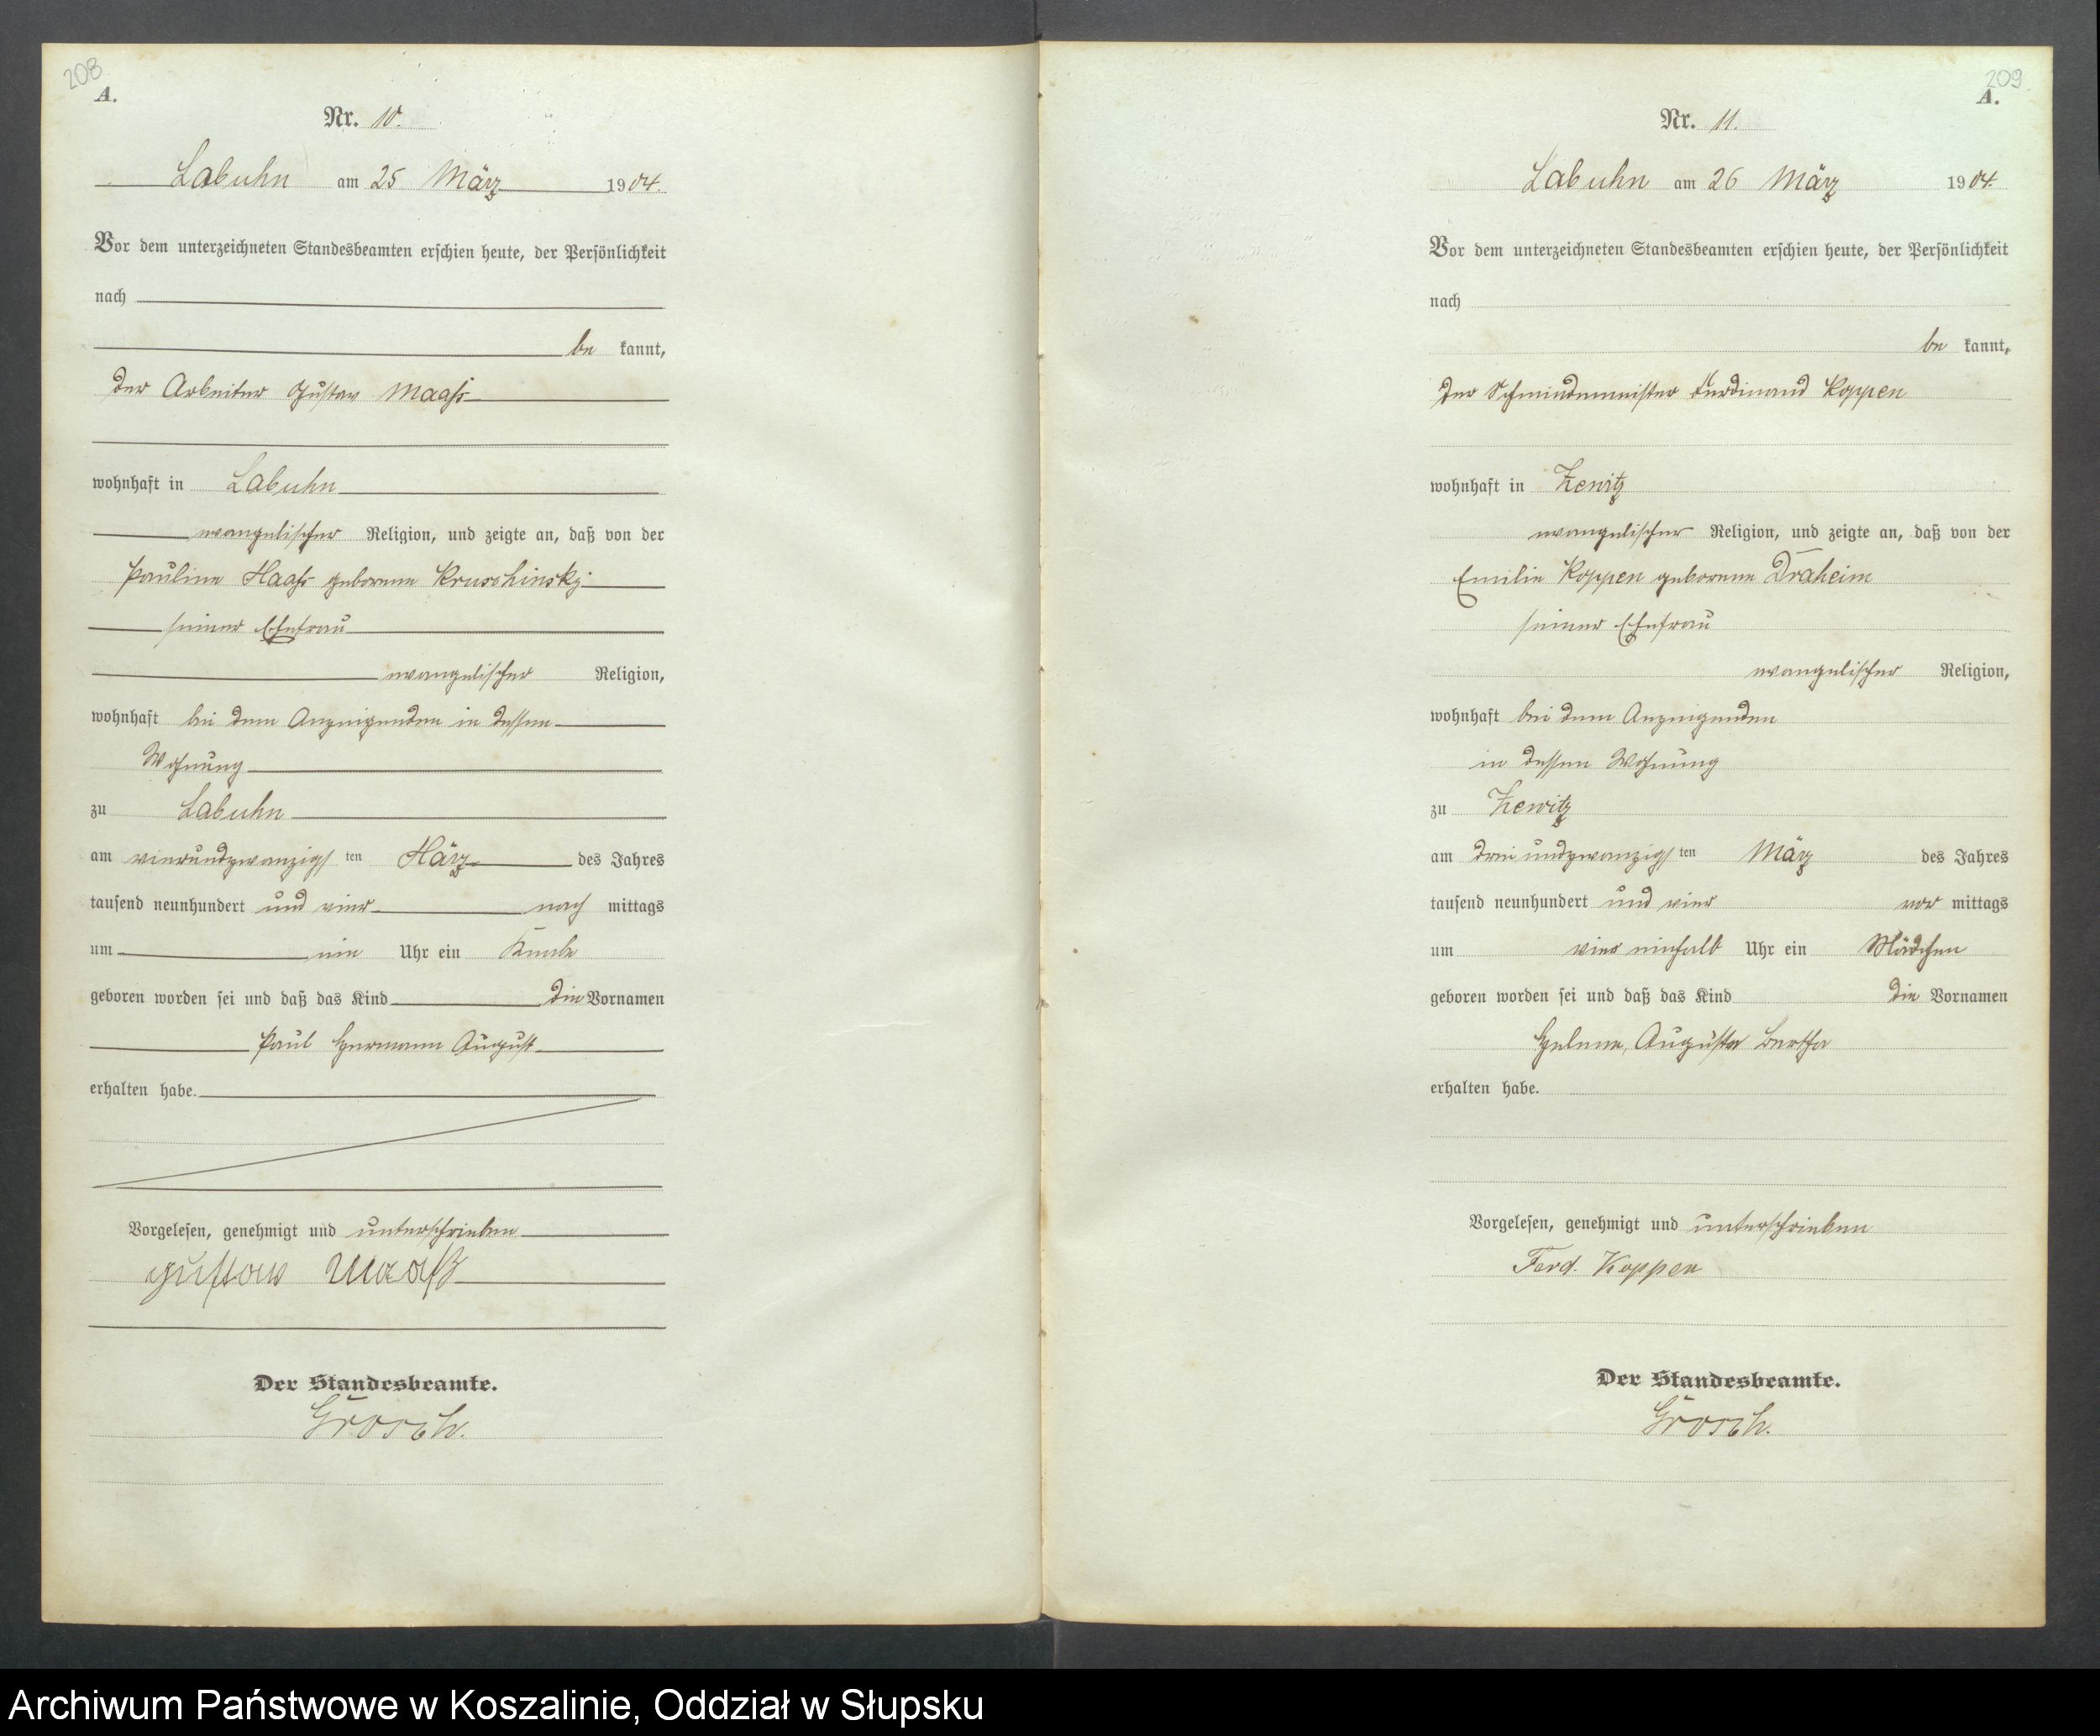 208
A.
Nr. 10.
Labuhn am 25 März 1904.
Vor dem unterzeichneten Standesbeamten erschien heute, der Persönlichkeit
nach
be kannt,
der Arbeiter Gustav Maaß
wohnhaft in Labuhn
evangelischer Religion, und zeigte an, daß von der
Pauline Maaß geborene Kruschinsky
seiner Ehefrau
evangelischer Religion,
wohnhaft bei dem Anzeigenden in dessen
Wohnung
zu Labuhn
am vierundzwanzigs ten März des Jahres
tausend neunhundert und vier nach mittags
um ein Uhr ein Knabe
geboren worden sei und daß das Kind die Vornamen
Paul Hermann August
erhalten habe.
Vorgelesen, genehmigt und unterschrieben
Gustav Maaß
Der Standesbeamte.
Grosch.
209
A.
Nr. 11.
Labuhn am 26 März 1904.
Vor dem unterzeichneten Standesbeamten erschien heute, der Persönlichkeit
nach
be kannt,
der Schmiedemeister Ferdinand Koppen
wohnhaft in Zewitz
evangelischer Religion, und zeigte an, daß von der
Emilie Koppen geborene Draheim
seiner Ehefrau
evangelischer Religion,
wohnhaft bei dem Anzeigenden
in dessen Wohnung
zu Zewitz
am dreiundzwanzigs ten März des Jahres
tausend neunhundert und vier vor mittags
um vier einhalb Uhr ein Mädchen
geboren worden sei und daß das Kind die Vornamen
Helene, Augusta Bertha
erhalten habe.
Vorgelesen, genehmigt und unterschrieben
Ferd. Koppen
Der Standesbeamte.
Grosch.
Archiwum Państwowe w Koszalinie, Oddział w Słupsku